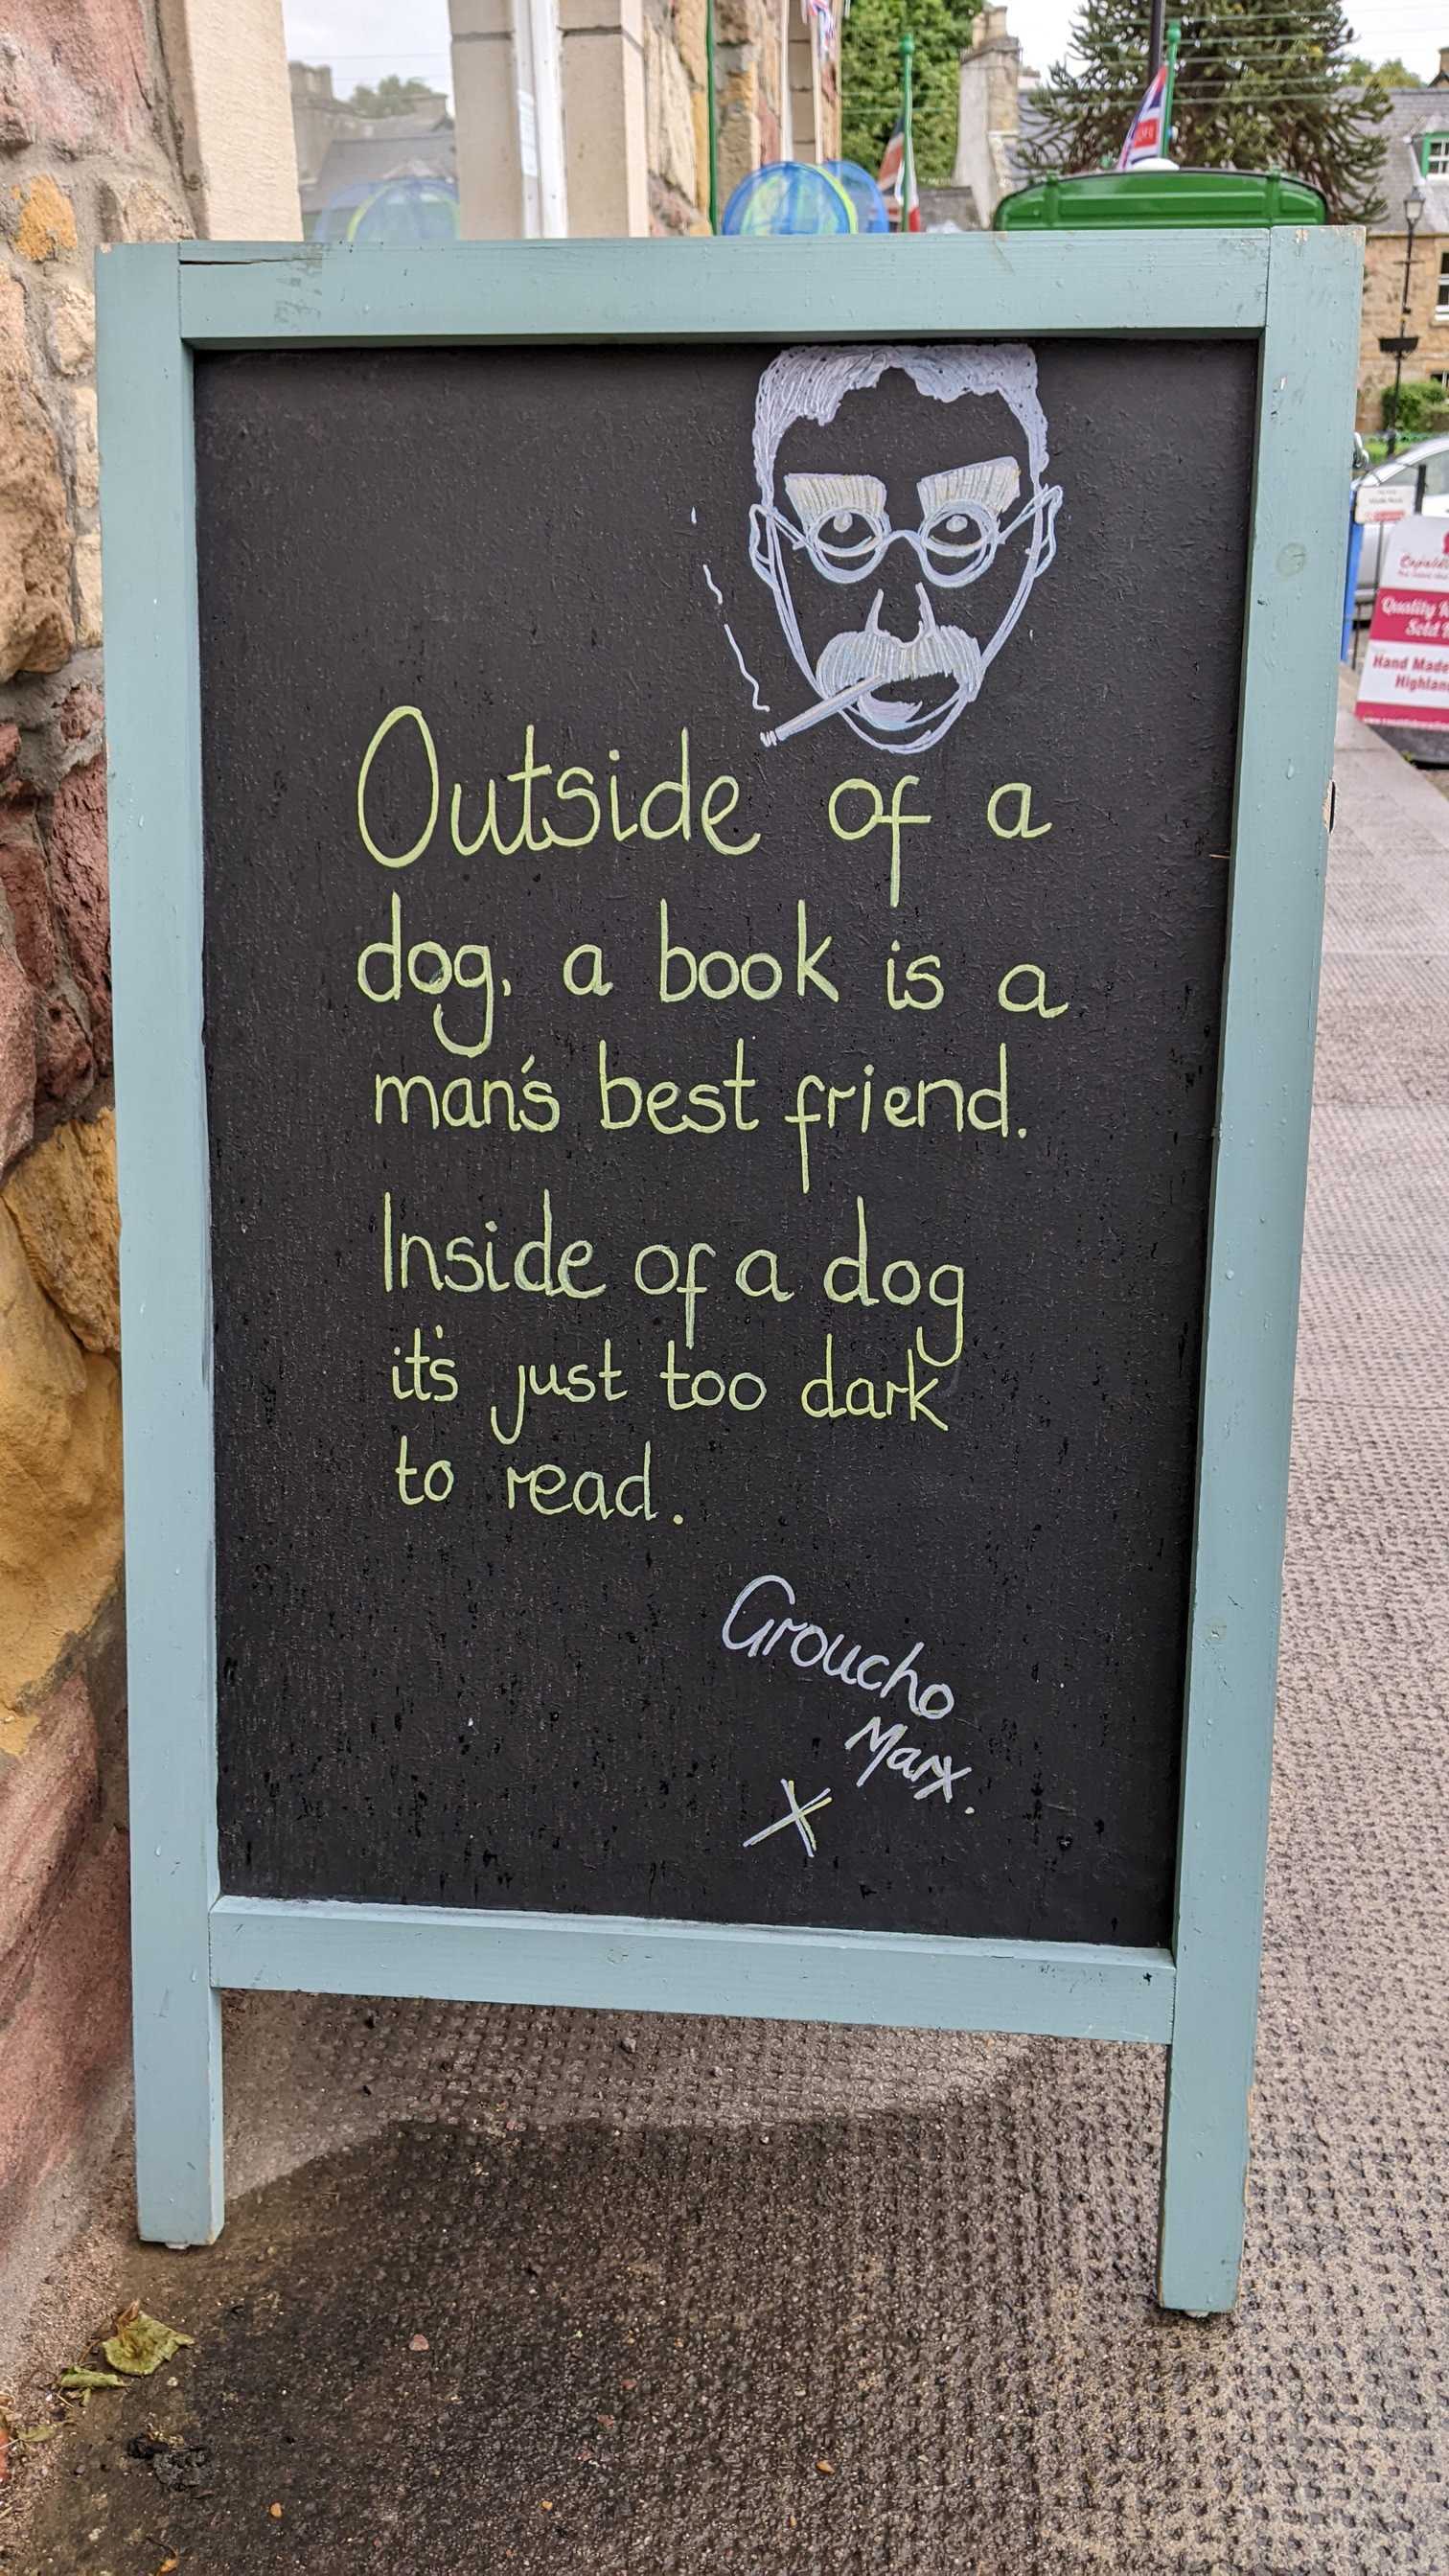 Outside of a
dog, a book is a
man's best friend.
Inside of a dog
it's just too dark
to read.
Groucho
Marx.
X
Quality
Sold
Hand Made